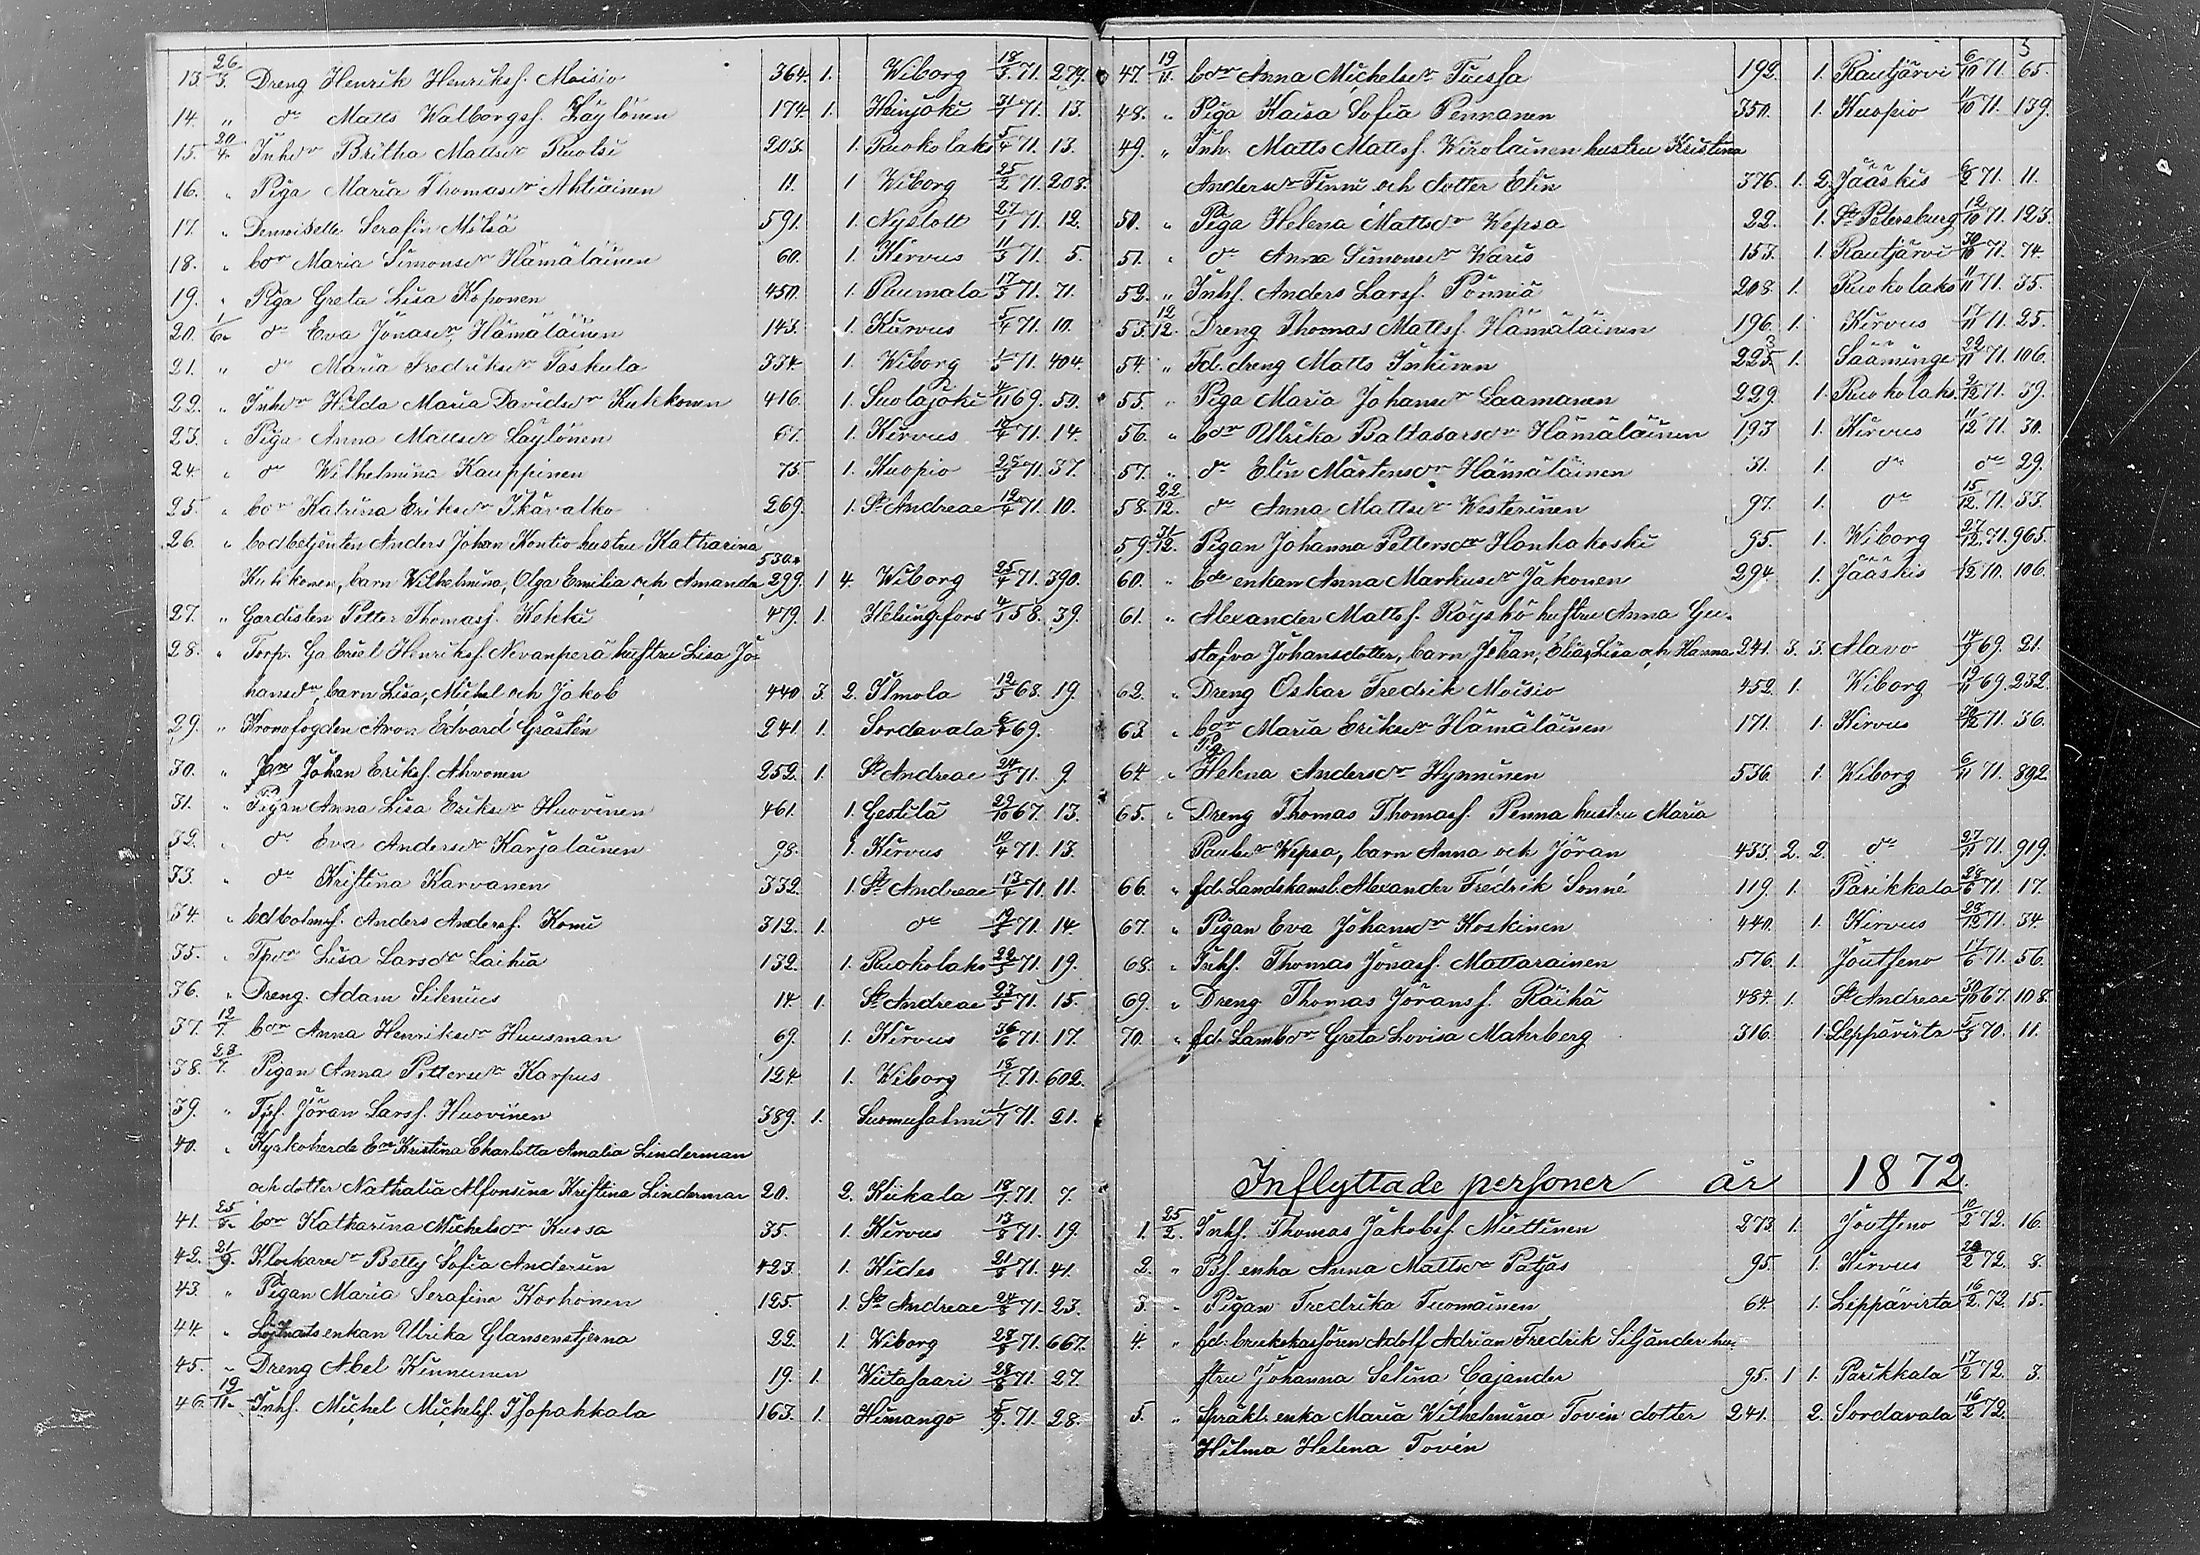 13. 26/3. Dreng Henrik Henrikss. Moisio 364. 1. Wiborg 18/3 71. 279.
14. " do Matts Walborgss. Läylönen 174. 1. Heinjoki 31/1 71. 13.
15. 20/4. Inhdr Britha Mattsdr Ruolsi 203. 1. Ruokolaks 5/4 71. 13.
16. " Piga Maria Thomasdr Ahtiainen 11. 1 Wiborg 25/2 71. 208.
17. " Demoiselle Serafin Mölsä 591. 1. Nyslott 27/1 71. 12.
18. " bdr Maria Simonsdr Hämäläinen 60. 1. Kirvus 11/3 71. 5.
19. " Piga Greta Lisa Koponen 450. 1. Puumala 17/3 71. 71.
20. 1/6. do Eva Jonasdr Hämäläinen 143. 1. Kirvus 5/4 71. 10.
21. " do Maria Fredriksdr Taskula 334. 1. Wiborg 71. 404.
22. " Inhdr Hilda Maria Davidsdr Kukkonen 416. 1. Suolajoki 69. 50.
23. " Piga Anna Mattsdr Läylönen 67. 1. Kirvus 71. 14.
24. " do Wilhelmina Kauppinen 75 1. Kuopio 25/3 71. 37.
25. " bdr Katrina Eriksdr Ikävalko 269. 1. St Andreae 12/4 71. 10.
26. " bodbetjenten Anders Johan Kontio hustru Katharina
530.
Kukkonen, barn Wilhelmina, Olga Emilia och Amanda 299. 1 4. Wiborg 25/4 71. 390.
27. " Gardisten Petter Thomass. Kekki 479. 1. Helsingfors 4/1 58. 39.
28. " Torp. Gabriel Henrikss. Nevanperä hustru Lisa Jo-
hansdr, barn Lisa, Michel och Jakob 440 3. 2. Ilmola 12/5 68. 19.
29. " Kronofogden Aron Edvard Gråstén 241. 1. Sordavala 69.
30. " Johan Erikss. Ahvonen 252. 1. St Andreae 24/5 71. 9
31. " Pigan Anna Lisa Eriksdr Huovinen 461. 1. Gestilä 29/10 67. 13.
32. " do Eva Andersdr Karjalainen 98. 1. Kirvus 10/4 71. 13.
33. " do Kristina Karvanen 332. 1. St Andreae 13/4 71. 11.
34. " Anders Anderss. Komi 312. 1. do 71. 14
35. " Tpdr Lisa Larsdr Laihia 132. 1. Ruokolaks 22/5 71. 19.
36. " Dreng. Adam Silenius 14. 1. St Andreae 23/5 71. 15.
37. 12/7. bdr Anna Henriksdr Huusman 69. 1. Kirvus 71. 17.
38. 23/7. Pigan Anna Pettersdr Karpus 124 1. Wiborg 18/7. 71. 602.
39. " Tps. Jöran Larss. Huovinen 389. 1. Suomusalmi 1/7 71. 21.
40. " Kyrkoherde Kristina Charlotta Amalia Linderman
och dotter Nathalia Alfonsina Kristina Linderman 20. 2. Kiikala 71. 7.
41. 25/8. bdr Katharina Michelsdr Kurssa 35. 1. Kirvus 13/8 71. 19.
42. 21/9. Klockaredr Betty Sofia Andersin 423. 1. Kides 21/8 71. 41.
43. " Pigan Maria Serafina Korhonen 125. 1. St Andreae 24/8 71. 23.
44. " Löjtnants enkan Ulrika Glansenstjerna 22. 1. Wiborg 28/8 71. 667.
45. " Dreng Abel Kinnunen 19. 1. Wiitasaari 71. 27.
46. 19/11. Inhs. Michel Michelss. Isopahkala 163. 1. Himango 5/9. 71. 28.
3
47. 19/11. bdr Anna Michelsdr Tuissa 192. 1. Rautjärvi 6/10 71. 65.
48. " Piga Kaisa Sofia Pennanen 350. 1. Kuopio 71. 139.
49. " Inh. Matts Mattss. Wirolainen hustru Kristina
Andersdr Tinni och dotter Elin 376. 1. 2. Jääskis 71. 11.
50. " Piga Helena Mattsdr Wepsa 22. 1. St Petersburg 12/10 71. 123.
51. " do Anna Simonsdr Waris 153. 1. Rautjärvi 71. 74.
52. " Inhs. Anders Larss. Pönniä 208. 1. Ruokolaks 71. 35.
53. 12/12. Dreng Thomas Mattss. Hämäläinen 196. 1. Kirvus 71. 25.
54. " Fd. dreng Matts Inkinen 223. 1. Sääminge 22/11 71. 106.
55. " Piga Maria Johansdr Laamanen 229. 1. Ruokolaks. 71. 39.
56. " bdr Ulrika Baltasarsdr Hämäläinen 193 1. Kirvus 71. 30.
57. " do Elin Mårtensdr Hämäläinen 31. 1. do do 29.
58. 22/12. do Anna Mattsdr Westerinen 97. 1. do 15/12. 71. 33.
59. 31/12. Pigan Johanna Pettersdr Honkakoski 95. 1. Wiborg 27/12. 71. 965.
60. " bde enkan Anna Markusdr Jakonen 294. 1. Jääskis 70. 106.
61. " Alexander Mattss. Röyskö hustru Anna Gu-
stafva Johansdotter, barn Johan, Elias, Lisa och Hanna 241. 3. 3. Alavo 14/9 69. 21.
62. " Dreng Oskar Fredrik Moisio 452. 1. Wiborg 69. 232.
63. " bdr Maria Eriksdr Hämäläinen 171. 1. Kirvus 71. 36.
Pig.
64. " Helena Andersdr Hynninen 536. 1. Wiborg 6/11 71. 892.
65. " Dreng Thomas Thomass. Penna hustru Maria
Paulsdr Wepsa, barn Anna och Jöran 433. 2. 2. do 27/11 71. 919.
66. " fd. Landskansl. Alexander Fredrik Sonné 119. 1. Parikkala 28/6 71. 17.
67. " Pigan Eva Johansdr Koskinen 440. 1. Kirvus 28/12 71. 34.
68. " Inhs. Thomas Jonass. Mattarainen 576. 1. Joutseno 17/6 71. 56.
69. " Dreng Thomas Jöranss. Räihä 487. 1. St Andreae 30/10 67. 108.
70. " fd. Greta Lovisa Mahrberg 316. 1. Leppävirta 70. 11.
Inflyttade personer år 1872.
1. 25/2. Inhs. Thomas Jakobss. Miettinen 273. 1. Joutseno 10/2 72. 16.
2. " Bs. enka Anna Mattsdr Patjas 95. 1. Kirvus 72. 8.
3. " Pigan Fredrika Tuomainen 64. 1. Leppävirta 16/2. 72. 15.
4. " fd. brukskassören Adolf Adrian Fredrik Siljander hu-
stru Johanna Selina Cajander 95. 1 1. Parikkala 17/2 72. 3.
5. " Språkl. enka Maria Wilhelmina Tovin dotter 241. 2. Sordavala 16/2 72.
Hilma Helena Tovén